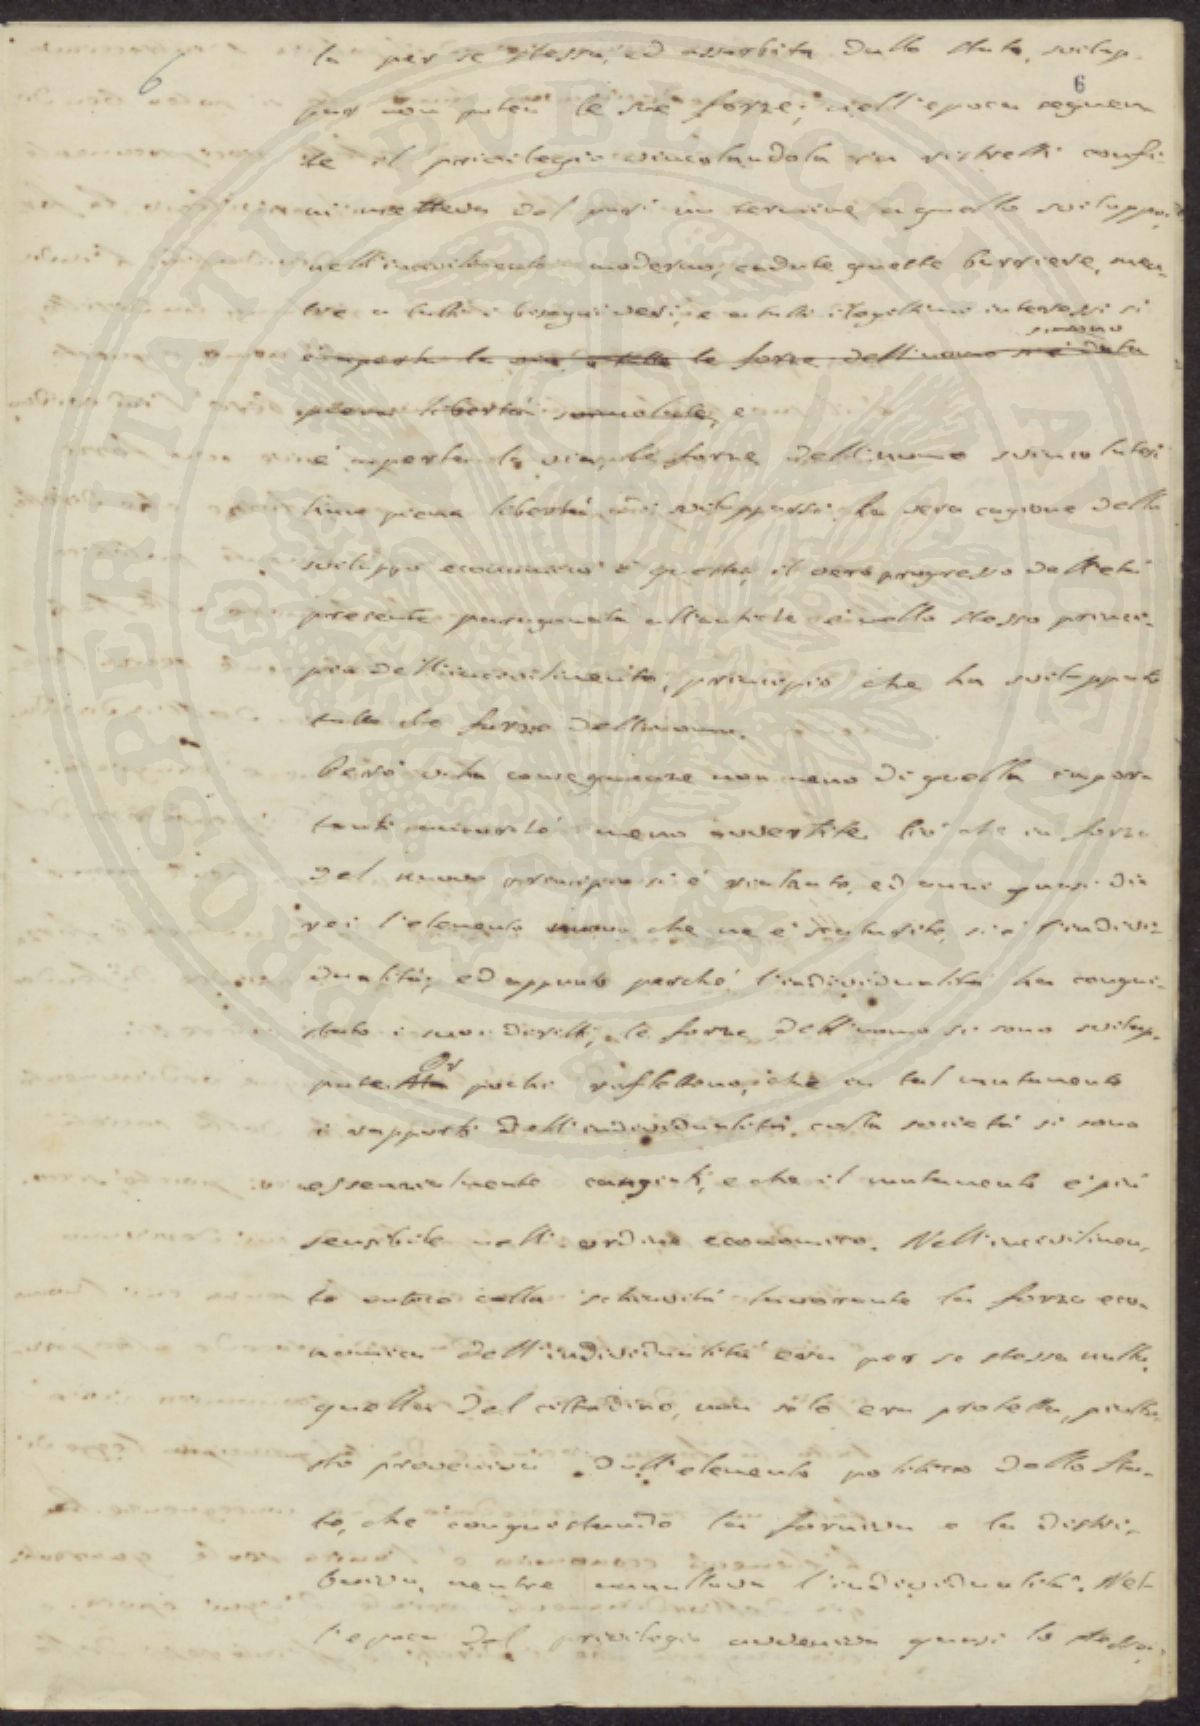 6
6
ta per se stessa, ed assorbita dallo stato, svilup-
par non potea le sue forze; nell'epoca seguen
te il privilegio vincolandola in ristretti confi-
ni metteva del pari un termine a quello sviluppo;
nell'incivilimento moderno, cadute quelle barriere, men-
tre a tutti i bisogni veri, e a tutti i legittimi interessi si
è aperta la via, a tutte le forze dell'uomo si è data
piena libertà svincolate, e
è aperta la via, le forze dell'uomo svincolatesi
piena libertà di svilupparsi. La vera cagione dello
sviluppo economico è questa, il vero progresso dell'età
presente paragonata all'antiche è nello stesso princi-
pio dell'incivilimento, principio che ha sviluppato
tutte le forze dell'uomo.
Però v'ha conseguenze non meno di quella impor-
tanti avvertite. Ciò che in forza
del nuovo principio si è rialzato, ed anzi quasi di
rei l'elemento nuovo che ne è scaturito, si è l'indivi-
dualità; ed appunto perché l'individualità ha conqui-
stato i suoi diritti, le forze dell'uomo si sono svilup-
pate. Or pochi riflettono, che in tal mutamento
i rapporti dell'individualità colla società si sono
essenzialmente cangiati, e che il mutamento è più
sensibile nell'ordine economico. Nell'incivilimen-
to antico colla schiavitù lavorante la forza eco-
nomica dell'individualità era per se stessa nulla,
quella del cittadino, non solo era protetta, piutto-
sto proveniva dall'elemento politico dello Sta-
to, che conquistando la forniva e la distri-
buiva, mentre annullava l'individualità. Nel-
l'epoca del privilegio avveniva quasi lo stesso;